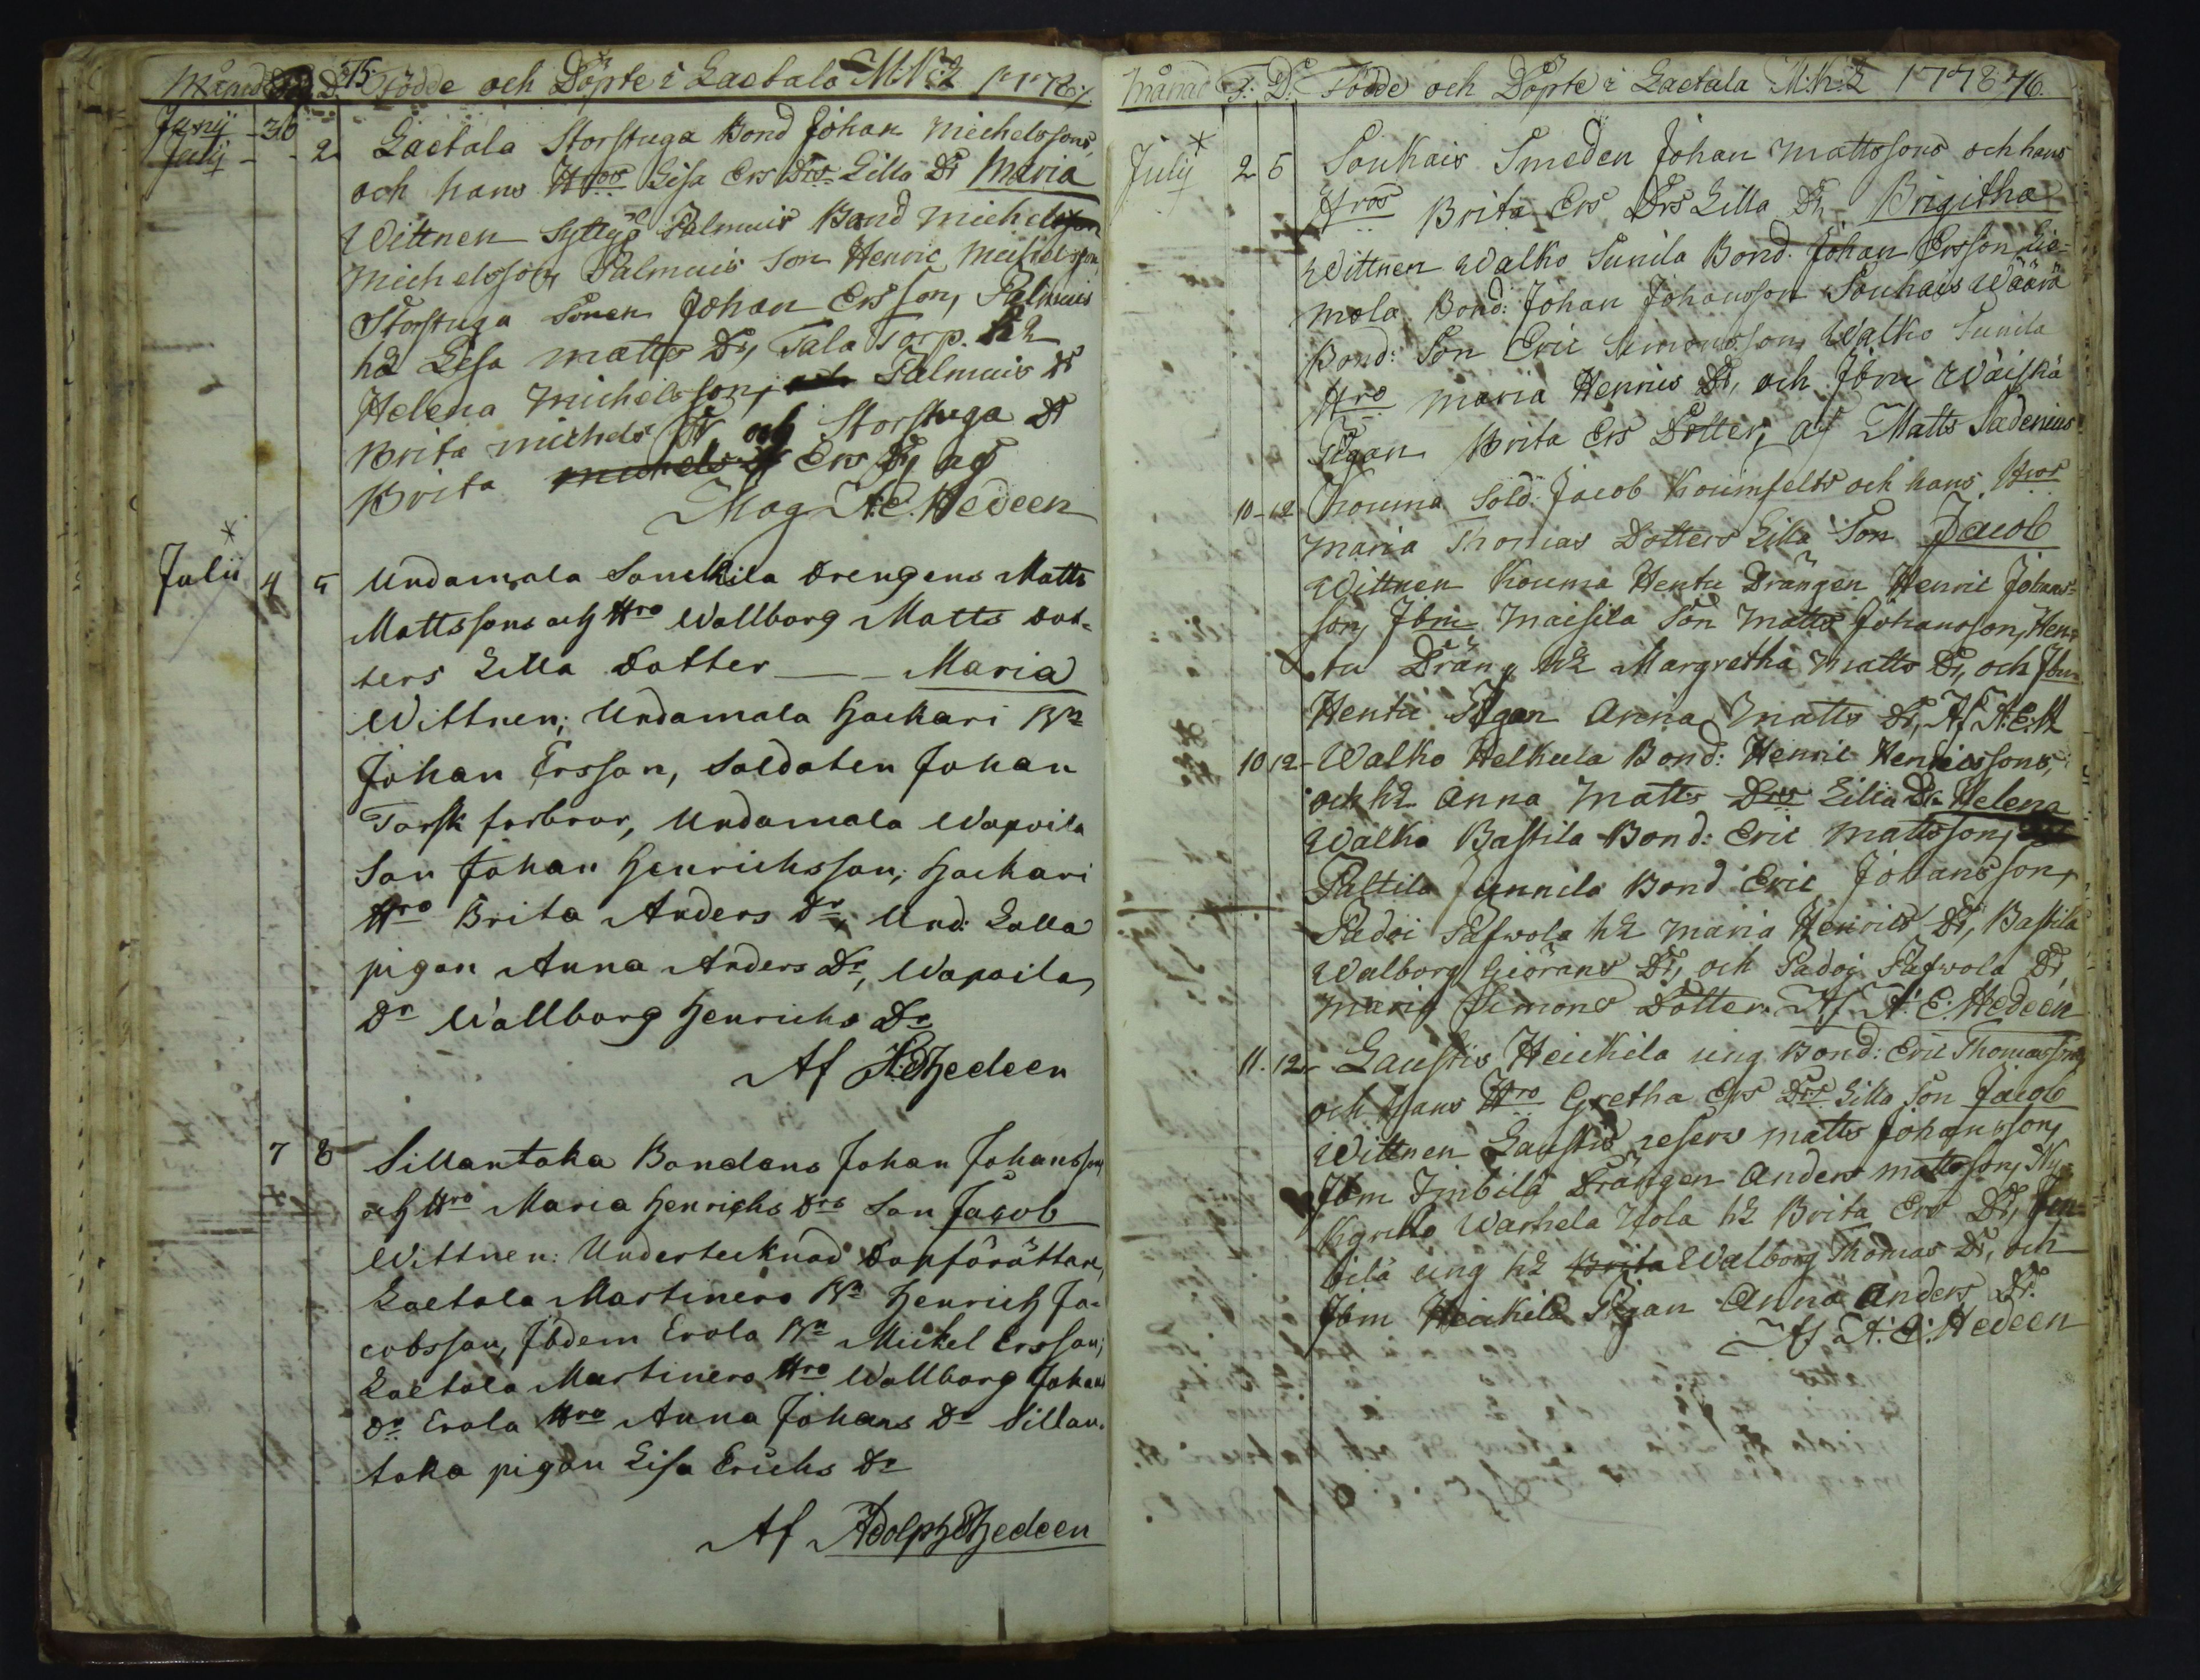 Månad D. 75. Födde och Döpte i Lactala M.K:L 1778.
Junij 30
Julij - - 2 Lactala Storstuga Bond Johan Michelssons,
och hans Hros Lisa Ers Drs Lilla Dr Maria
Wittnen Palmuis Bond Michelsson
Michelsson, Palmuis Son Henric Michelsson,
Storstuga Sonen Johan Ersson, Palmuis
h2 Lisa Matts Dr, Tala Torp. h2
Helena Michelsson, Palmuis Dr
Brita Michels Dr, och Storstuga Dr
Brita Michels Dr Ers Dr, af
Mag A.E. Hedeen
Julii * 4 5 Undamala Sonckila Drengens Matts
Mattssons och Hro Wallborg Matts dot-
ters Lilla Dotter — Maria
Wittnen; Undamala Hackari Bn
Johan Ersson, Soldaten Johan
Torsk forbror, Undamala Wapoila
Son Johan Henrichsson, Hackari
Hro Brita Anders Dr, Und: Lalla
pigan Anna Anders Dr, Wapoila
Dr Wallborg Henrichs Dr
Af A:E Hedeen
7 8 Sillantaka Bondens Johan Johansson
och Hro Maria Henrichs Drs Son Jacob
Wittnen: Undertecknad Dopförättare,
Laetala Martinero Bn Henrich Ja-
cobsson, Ibdem Erola Bn Mickel Ersson;
Laetala Martinero Hro Wallborg Johans
Dr Erola Hro Anna Johans Dr Sillan-
taka pigan Lisa Erichs Dr
Af Adolph E Hedeen
Månad F: D: Födde och Döpte i Lactala M:K:L 1778 76.
Julij * 2 5 Soukais Smeden Johan Mattssons och hans
Hros Brita Ers Drs Lilla Dr Brigitha
Wittnen Walko Sunila Bond. Johan Ersson, Lie-
mola Bond: Johan Johansson Soukais Wäärä
Bond: Son Eric Simonsson, Walko Sunila
Hro Maria Henrics Dr, och Ibm Wäiskä
Pigan Brita Ers Dotter, af Matts Padenius
10 - 12 Kouma Sold: Jacob Koumfelts och hans Hros
Maria Thomas Dotters Lilla Son Jacob
Wittnen Kouma Hentu Drängen Henric Johans-
son, Ibm Maisila Son Matts Johansson, Hen-
tu Dräng h2 Margretha Matts Dr, och Ibm
Hentu Pigan Anna Matts Dr, Af A:E:H
10 12 - Walko Helkula Bond: Henric Henricssons,
och h2 Anna Matts Drs Lilla Dr Helena
Walko Bastila Bond: Eric Mattsson,
Paltila Junnila Bond Eric Johansson,
Padoi Pafwola h2 Maria Henrics Dr, Bastila
Walborg Giörans Dr, och Padoj Pafwola Dr,
Maria Simons Dotter. Af A:E:Hedeen
11. 12 - Laustis Heickila ung Bond: Eric Thomassons
och hans Hro Gretha Ers Drs Lilla Son Jacob
Wittnen Laustis reserv Matts Johansson,
Ibm Imbilä Drängen Anders Mattsson, Ny-
Warhela Yola h2 Brita Ers Dr, Im-
bilä ung h2 Brita Walborg Thomas Dr, och
Ibm Heickilä Pigan Anna Anders Dr.
Af A:E:Hedeen